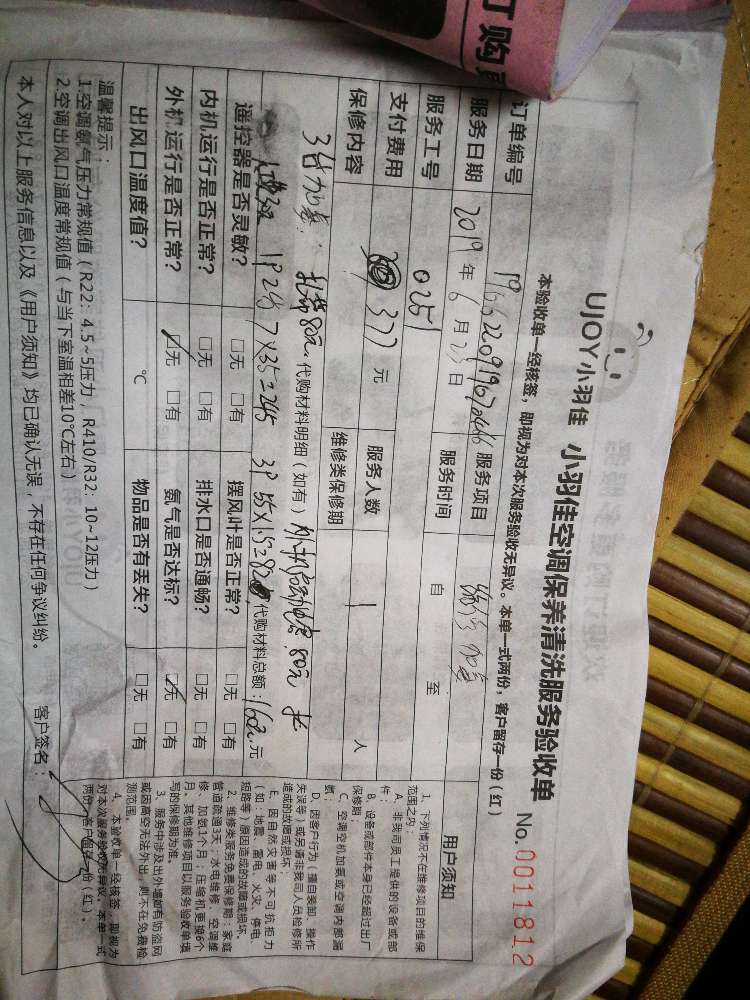 订购
UJOY小羽佳 小羽佳空调保养清洗服务验收单 No.0011812
本验收单一经核签，即视为对本次服务验收无异议。本单一式两份，客户留存一份（红）
订单编号 服务项目 维修 加氨
服务日期 2019年6月23日 服务时间 自 至
服务工号 0251
支付费用 377 元 服务人数 1 人
保修内容 维修类保修期
代购材料明细（如有）
1P 245 7×35=245 3P 55×1.5=82 代购材料总额：160元 元
遥控器是否灵敏？ □无 □有 摆风叶是否正常？ □无 □有
内机运行是否正常？ □无 □有 排水口是否通畅？ □无 □有
外机运行是否正常？ □无 □有 氨气是否达标？ □无 □有
出风口温度值？ ℃ 物品是否有丢失？ □无 □有
温馨提示：
1.空调氨气压力常规值（R22：4.5~5压力，R410/R32：10~12压力）
2.空调出风口温度常规值（与当下室温相差10℃左右）
本人对以上服务信息以及《用户须知》均已确认无误，不存在任何争议纠纷。 客户签名：
用户须知
1、下列情况不在维修项目的维保
范围之内：
A、非我司员工提供的设备或部
件；
B、设备或部件本身已经超过出厂
保修期；
C、空调空机加氨或空调内部漏
氨；
D、因客户行为（擅自装卸、操作
失误等）或另请非我司人员检修所
造成的故障或损坏；
E、因自然灾害等不可抗拒力
（如：地震、雷电、火灾、停电、
短路等）原因造成的故障或损坏。
2、维修类服务免费保修期：家庭
管道疏通3天，水电维修、空调维
修、加氨1个月，压缩机更换6个
月，其他维修项目以服务验收单填
写的保修期为准。
3、服务中涉及出外墙如有防盗网
或因高空无法外出，则不在免费检
测范围。
4、本验收单一经核签，即视为
对本次服务验收无异议。本单一式
两份，客户留存一份（红）。